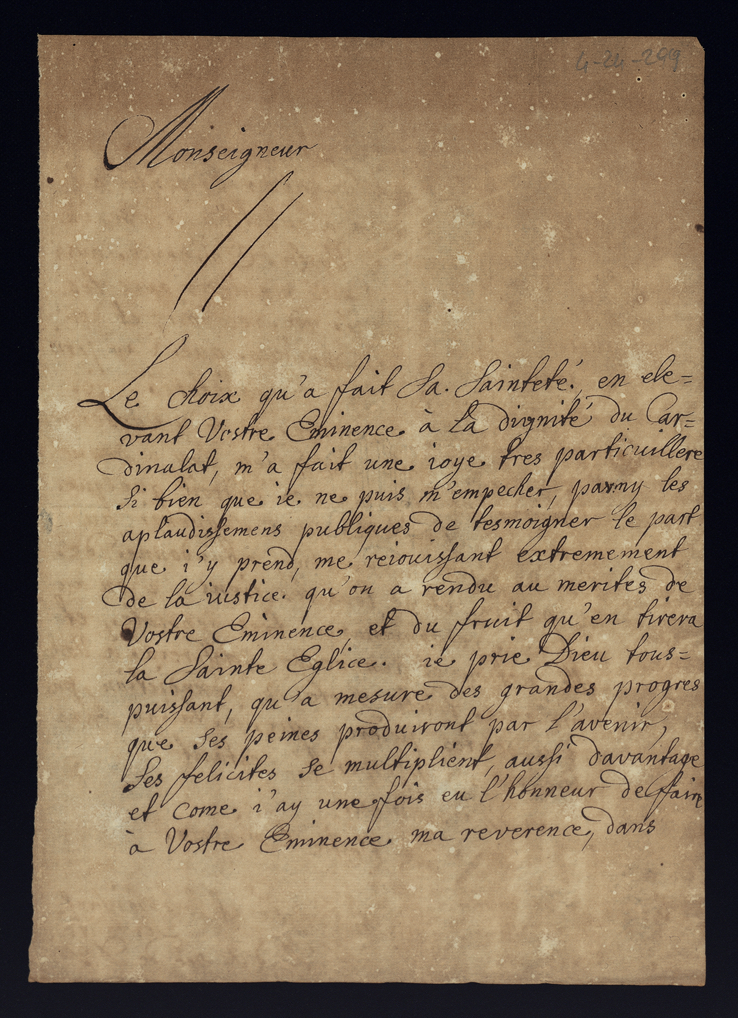 4-24-299
Monseigneur
Le choix qu'a fait Sa Sainteté, en ele=
vant Vostre Eminence à la dignité du Car=
dinalat, m'a fait une ioye tres particuillere
Si bien que ie ne puis m'empecher, parmy les
aplaudissemens publiques de tesmoigner le part
que i'y prend, me reiouissant extremement
de la iustice qu'on a rendu au merites de
Vostre Eminence, et du fruit qu'en tirera
la Sainte Eglice. ie prie Dieu tous=
puissant, qu'a mesure des grandes progres
que Ses peines produiront par l'avenir,
Ses felicites se multiplient, aussi davantage
et come i'ay une fois eu l'honneur de faire
à Vostre Eminence ma reverence, dans